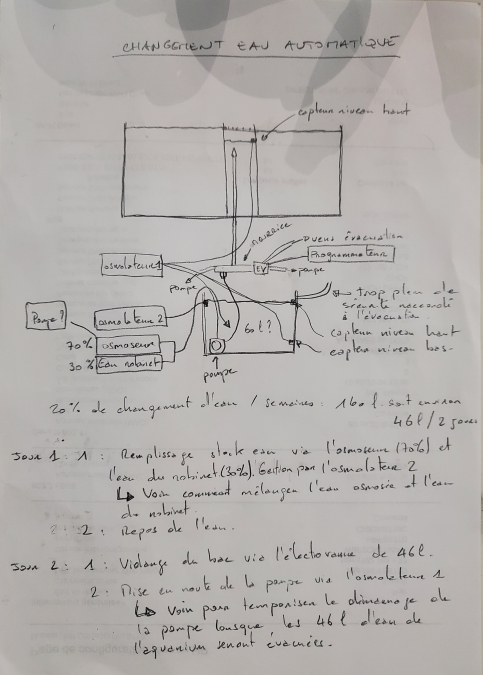 CHANGEMENT EAU AUTOMATIQUE
capteur niveau haut
nourrice
Duens évacuation
Programmateur
EV
pompe
osmolateur 1
pompe
trop plein de
sécurité raccordé
à l'évacuation.
Pompe ?
osmolateur 2
60 l ?
capteur niveau haut
70% osmoseur
30% Eau robinet
capteur niveau bas
pompe
20% de changement d'eau / semaines : 160 l. soit environ
46 l / 2 jours
Jour 1 : 1 : Remplissage stock eau via l'osmoseur (70%) et
l'eau du robinet (30%). Gestion par l'osmolateur 2
↳ Voir comment mélanger l'eau osmosée et l'eau
du robinet.
2 : Repos de l'eau.
Jour 2 : 1 : Vidange du bac via l'électrovanne de 46 l.
2 : Mise en route de la pompe via l'osmolateur 1
↳ Voir pour temporiser le démarrage de
la pompe lorsque les 46 l d'eau de
l'aquarium seront évacuées.